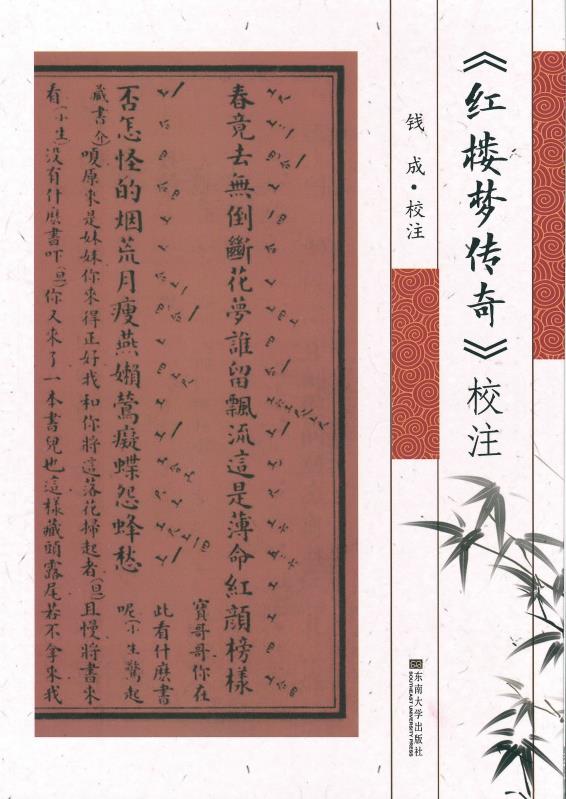 《红楼梦传奇》校注
钱 成·校注
春竟去無倒斷花夢誰留飄流這是薄命紅顏榜樣
寶哥哥你在
此看什麽書
否怎怪的烟荒月瘦燕嬾鶯癡蝶怨蜂愁
呢(小生驚起
藏書介)嗄原來是妹妹你來得正好我和你將這落花掃起者(旦)且慢將書來
看(小生)没有什麽書吓(旦)你又來了一本書兒也這樣藏頭露尾若不拿來我
东南大学出版社
SOUTHEAST UNIVERSITY PRESS